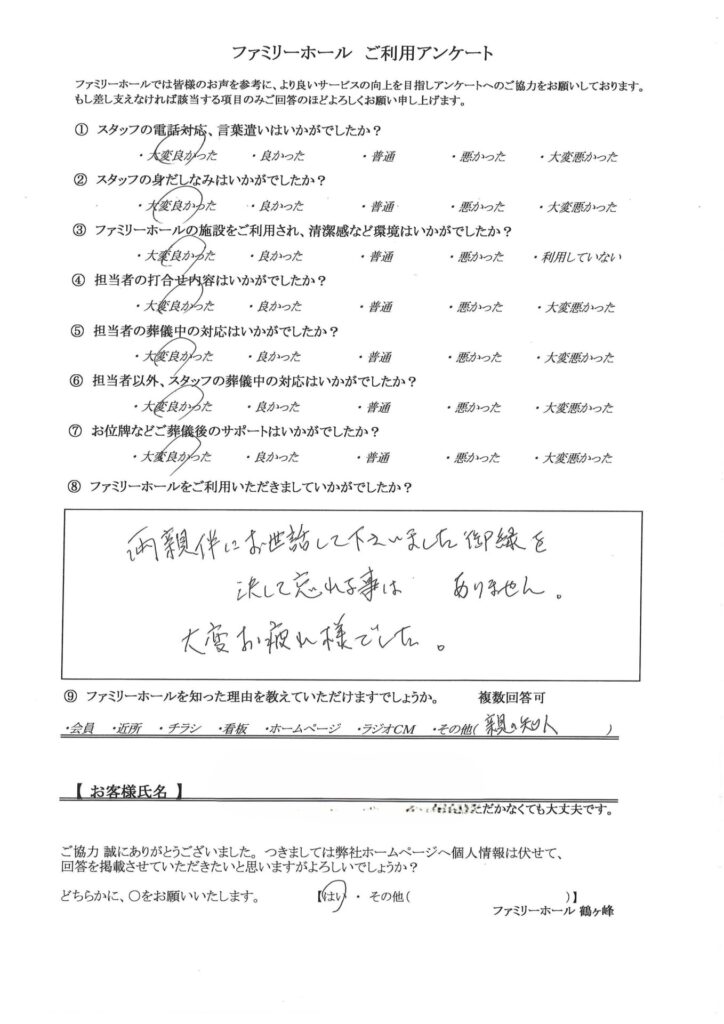 ファミリーホール ご利用アンケート
ファミリーホールでは皆様のお声を参考に、より良いサービスの向上を目指しアンケートへのご協力をお願いしております。
もし差し支えなければ該当する項目のみご回答のほどよろしくお願い申し上げます。
① スタッフの電話対応、言葉遣いはいかがでしたか？
・大変良かった ・良かった ・普通 ・悪かった ・大変悪かった
② スタッフの身だしなみはいかがでしたか？
・大変良かった ・良かった ・普通 ・悪かった ・大変悪かった
③ ファミリーホールの施設をご利用され、清潔感など環境はいかがでしたか？
・大変良かった ・良かった ・普通 ・悪かった ・利用していない
④ 担当者の打合せ内容はいかがでしたか？
・大変良かった ・良かった ・普通 ・悪かった ・大変悪かった
⑤ 担当者の葬儀中の対応はいかがでしたか？
・大変良かった ・良かった ・普通 ・悪かった ・大変悪かった
⑥ 担当者以外、スタッフの葬儀中の対応はいかがでしたか？
・大変良かった ・良かった ・普通 ・悪かった ・大変悪かった
⑦ お位牌などご葬儀後のサポートはいかがでしたか？
・大変良かった ・良かった ・普通 ・悪かった ・大変悪かった
⑧ ファミリーホールをご利用いただきましていかがでしたか？
両親伴にお世話して下さいました御縁を
決して忘れる事は ありません。
大変お疲れ様でした。
⑨ ファミリーホールを知った理由を教えていただけますでしょうか。 複数回答可
・会員 ・近所 ・チラシ ・看板 ・ホームページ ・ラジオCM ・その他( 親の知人 )
【 お客様氏名 】
ただかなくても大丈夫です。
ご協力 誠にありがとうございました。つきましては弊社ホームページへ個人情報は伏せて、
回答を掲載させていただきたいと思いますがよろしいでしょうか？
どちらかに、〇をお願いいたします。 【はい ・ その他( )】
ファミリーホール 鶴ヶ峰